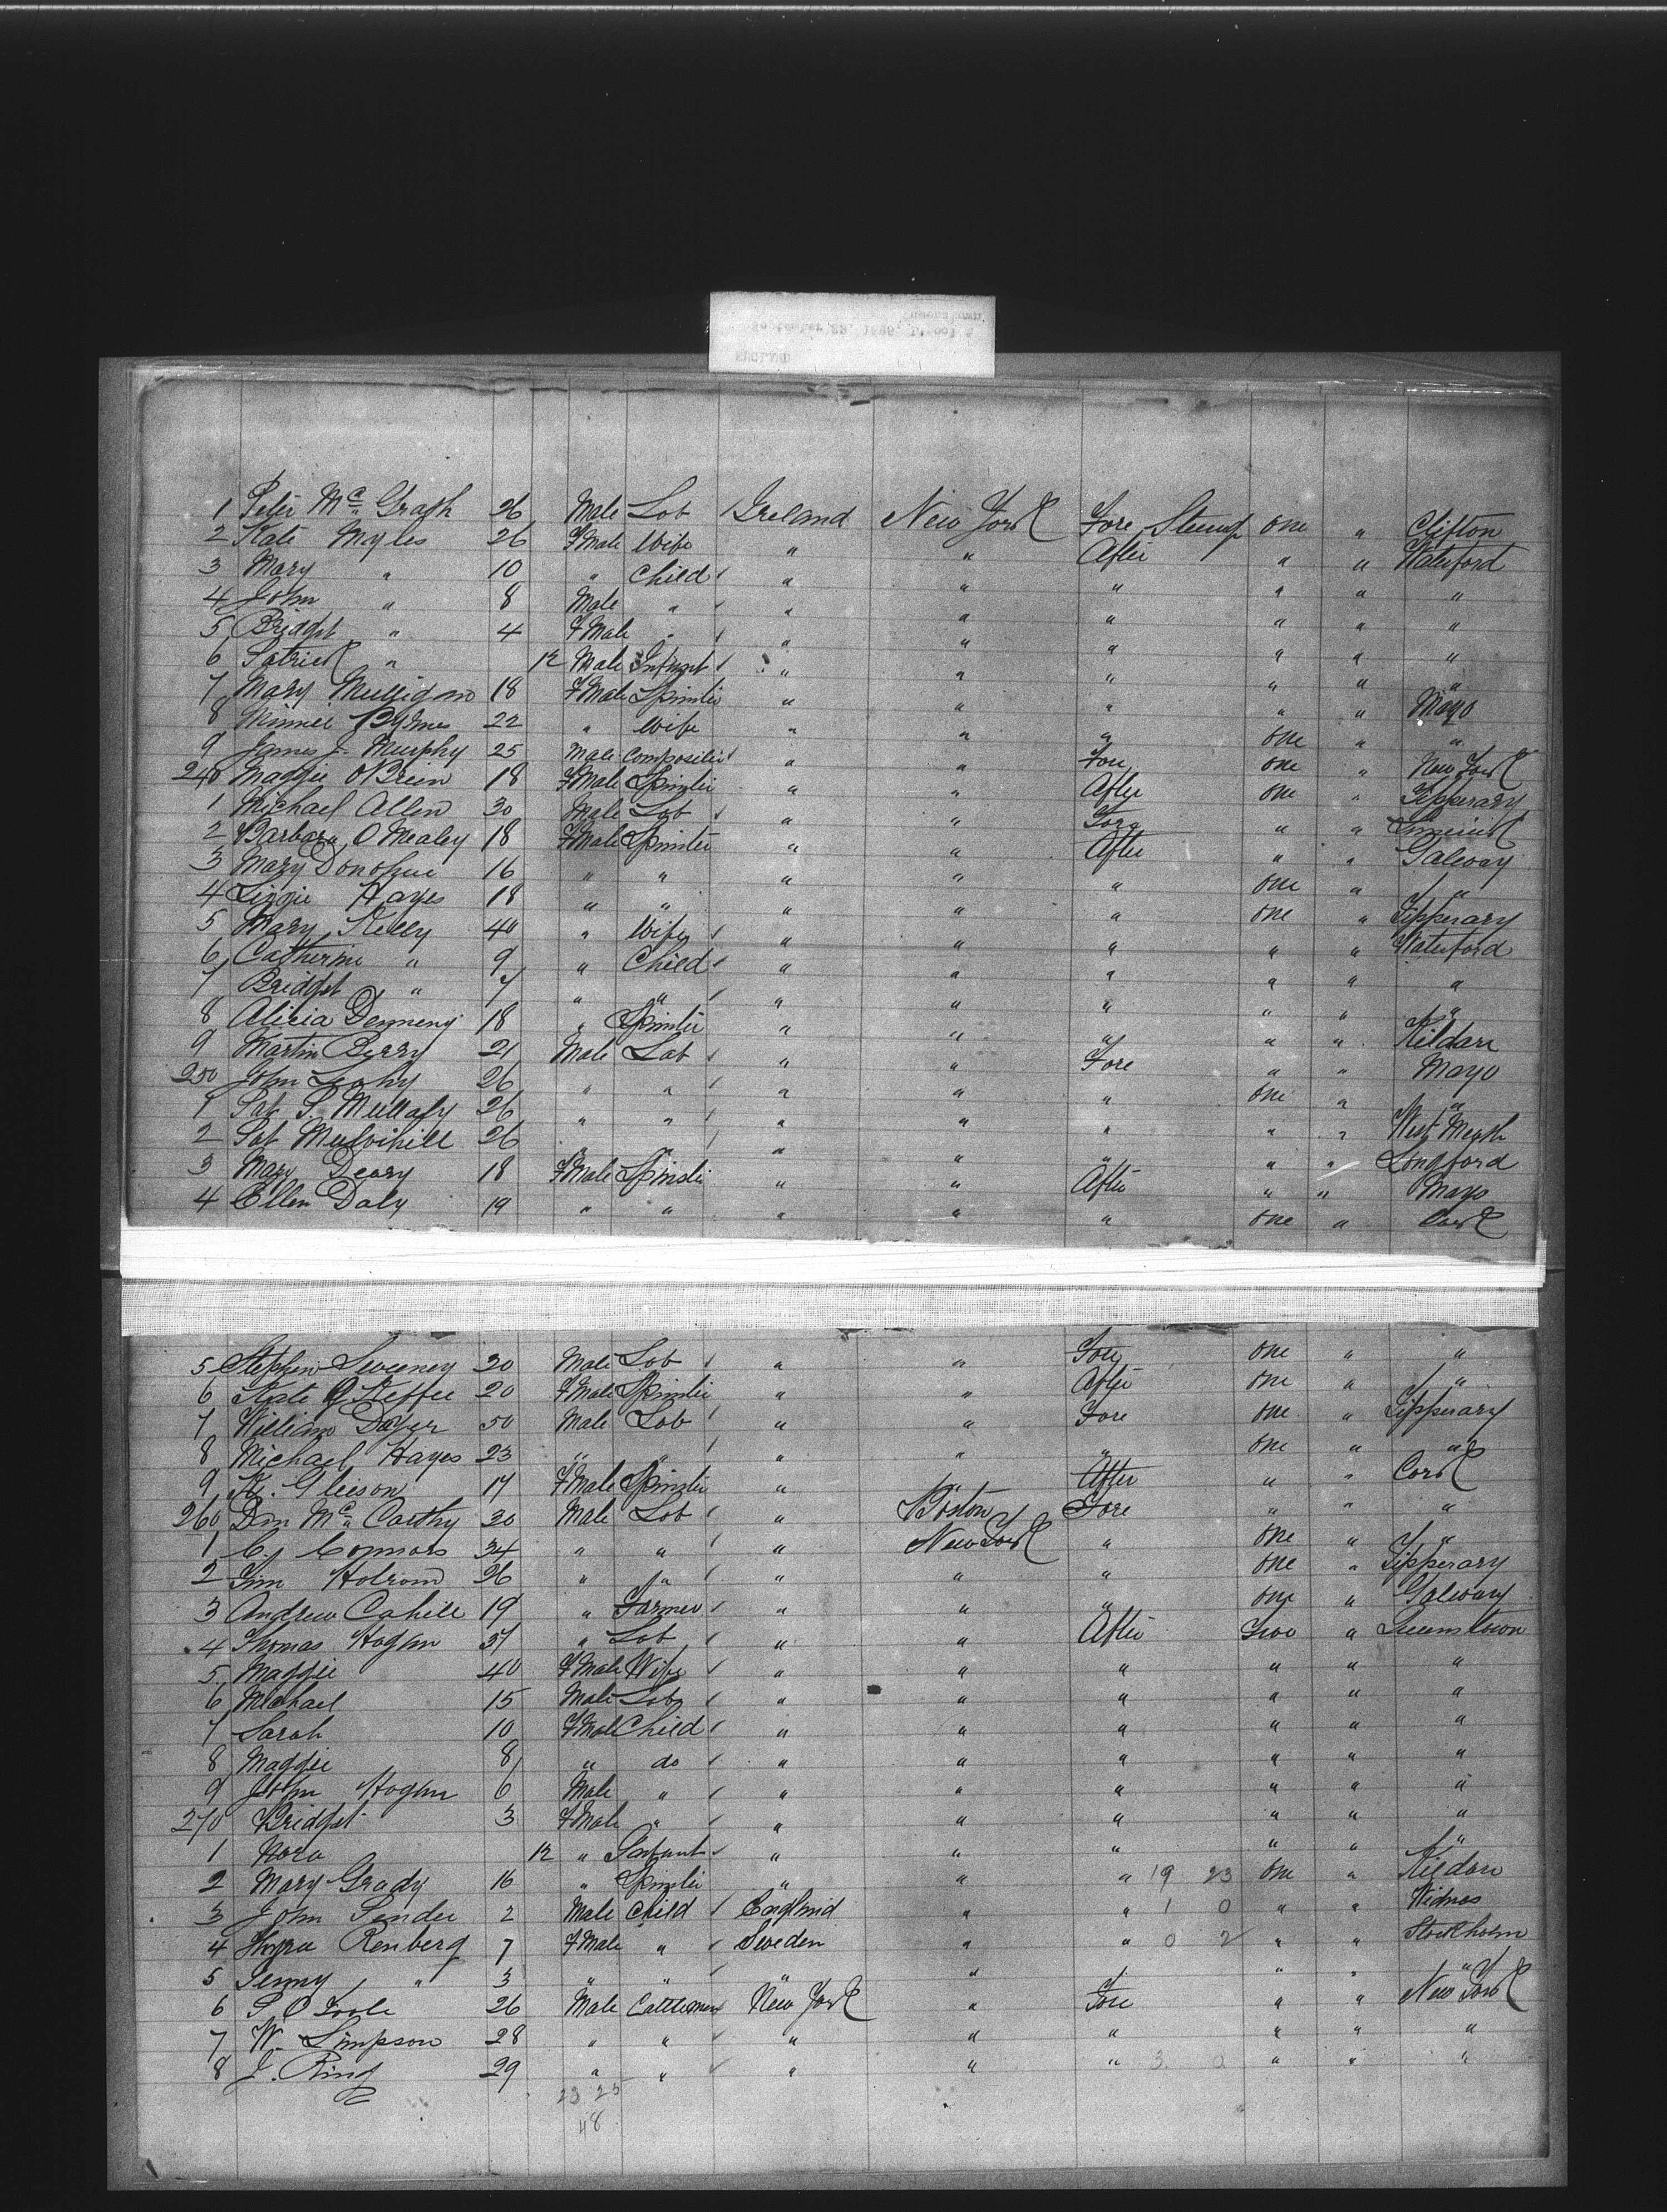 1 Peter Mc Grath 26 Male Lab Ireland New York Fore Steerage one " Clifton
2 Kate Myles 26 F Male Wife " " After " " Waterford
3 Mary " 10 " Child " " " " " "
4 John " 8 Male " " " " " " "
5 Bridget " 4 F Male " " " " " " "
6 Patrick " 12 Male Infant " " " " " "
7 Mary Mulligan 18 F Male Spinster " " " " " Mayo
8 Minnie Byrnes 22 " Wife " " " one " "
9 James J. Murphy 25 Male Compositer " " Fore one " New York
240 Maggie O'Brien 18 F Male Spinster " " After one " Tipperary
1 Michael Allen 30 Male Lab " " Fore " " Limerick
2 Barbara O Mealey 18 F Male Spinster " " After " " Galway
3 Mary Donohue 16 " " " " " one " "
4 Lizzie Hayes 18 " " " " " one " Tipperary
5 Mary Kelly 40 " Wife " " " " " Waterford
6 Catherine " 9 " Child " " " " " "
7 Bridget " 7 " " " " " " " "
8 Alicia Denneny 18 " Spinster " " " " " Kildare
9 Martin Berry 21 Male Lab " " Fore " " Mayo
250 John Leahy 26 " " " " " one " "
1 Pat P. Mullaly 26 " " " " " " " West Meath
2 Pat Mulvihill 26 " " " " " " " Longford
3 Mary Deary 18 F Male Spinster " " After " " Mayo
4 Ellen Daly 19 " " " " " one " Cork
5 Stephen Sweeney 20 Male Lab " " Fore one " "
6 Kate O'Keffee 20 F Male Spinster " " After one " "
7 William Dwyer 50 Male Lab " " Fore one " Tipperary
8 Michael Hayes 23 " " " " " one " "
9 K. Gleeson 17 F Male Spinster " " After " " Cork
260 Dan Mc Carthy 30 Male Lab " Boston Fore " " "
1 C. Connors 34 " " " New York " one " "
2 Tim Holrom 26 " " " " " one " Tipperary
3 Andrew Cahill 19 " Farmer " " " one " Galway
4 Thomas Hogan 37 " Lab " " After Two " Queenstown
5 Maggie 40 F Male Wife " " " " " "
6 Michael 15 Male Lab " " " " " "
7 Sarah 10 F Mal Child " " " " " "
8 Maggie 8 " do " " " " " "
9 John Hogan 6 Male " " " " " " "
270 Bridget 3 F Male " " " " " " "
1 Nora 12 " Infant " " " " " "
2 Mary Grady 16 " Spinster " " " 19 23 one " Kildare
3 John Pender 2 Male Child England " " 1 0 " " Widnes
4 Thyra Renberg 7 F Male " Sweden " " 0 2 " " Stockholm
5 Jenny " 3 " " " " " " "
6 P. O Toole 26 Male Cattleman New York " Fore " " New York
7 W. Simpson 28 " " " " " " " "
8 J. Ring 29 " " " " " 3 0 " " "
23 25
48